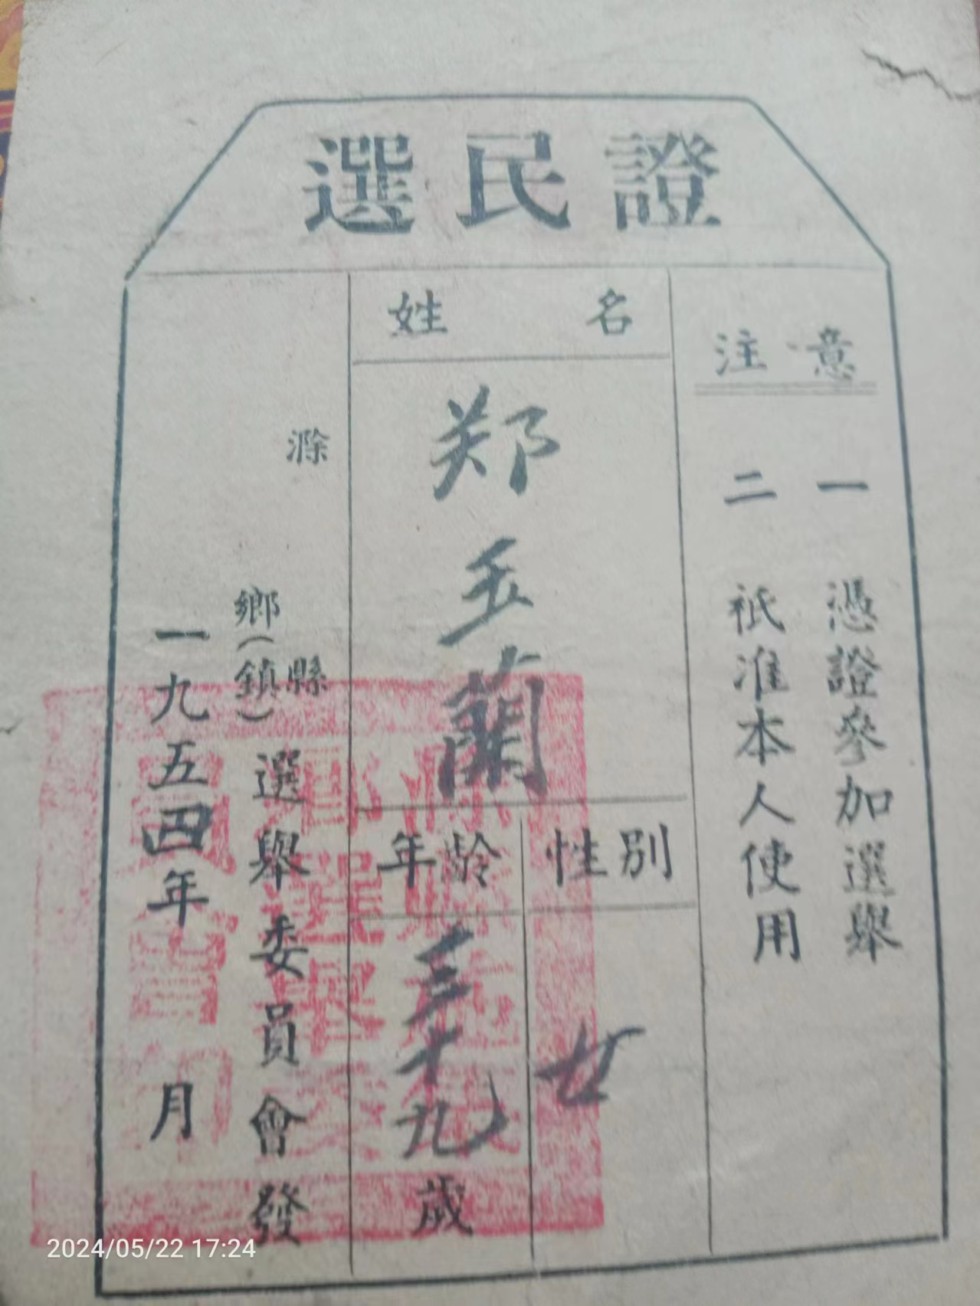 選民證
注意
一 憑證參加選舉
二 祇准本人使用
姓名
郑玉蘭
性別
女
年齡
三十九歲
滁縣
鄉(鎮)選舉委員會發
一九五四年 月
2024/05/22 17:24